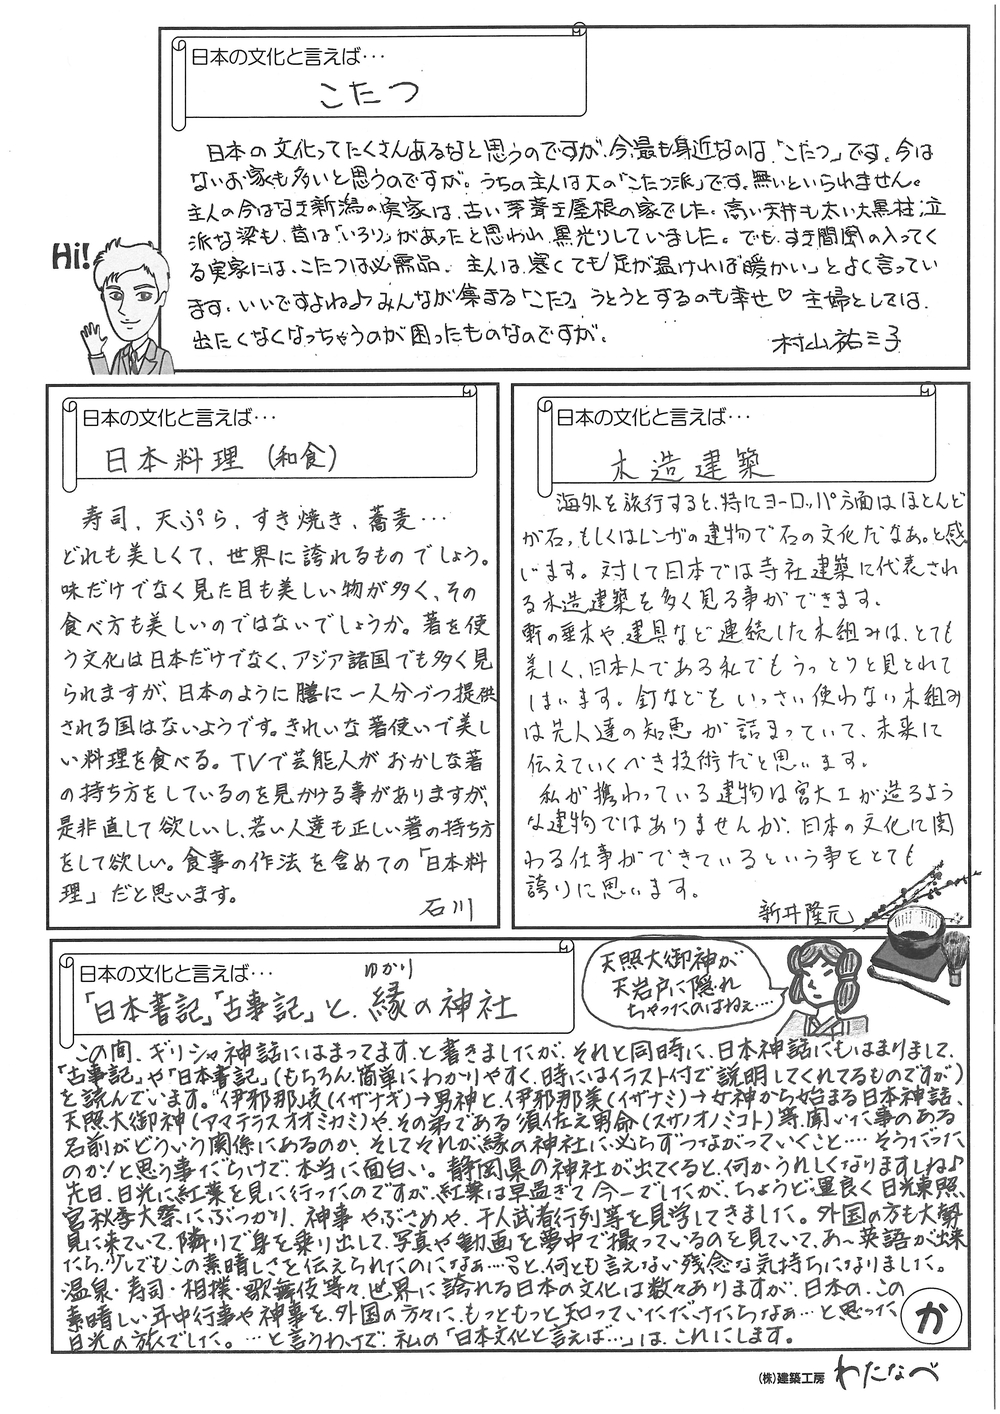 日本の文化と言えば…
こたつ
日本の文化ってたくさんあるなと思うのですが、今、最も身近なのは、「こたつ」です。今は
ないお家も多いと思うのですが。うちの主人は大の「こたつ派」です。無いといられません。
主人の今はなき新潟の実家は、古い茅葺き屋根の家でした。高い天井も太い大黒柱、立
派な梁も、昔は「いろり」があったと思われ、黒光りしていました。でも、すき間風の入ってく
る実家には、こたつは必需品。主人は、寒くても「足が温ければ暖かい」とよく言ってい
ます。いいですよね♪みんなが集まる「こたつ」うとうとするのも幸せ♡ 主婦としては、
出たくなくなっちゃうのが困ったものなのですが。
村山祐三子
Hi!
日本の文化と言えば…
日本料理 (和食)
寿司、天ぷら、すき焼き、蕎麦…
どれも美しくて、世界に誇れるものでしょう。
味だけでなく見た目も美しい物が多く、その
食べ方も美しいのではないでしょうか。箸を使
う文化は日本だけでなく、アジア諸国でも多く見
られますが、日本のように膳に一人分づつ提供
される国はないようです。きれいな箸使いで美し
い料理を食べる。TVで芸能人がおかしな箸
の持ち方をしているのを見かける事がありますが、
是非直して欲しいし、若い人達も正しい箸の持ち方
をして欲しい。食事の作法を含めての「日本料
理」だと思います。
石川
日本の文化と言えば…
木造建築
海外を旅行すると、特にヨーロッパ方面はほとんど
が石、もしくはレンガの建物で石の文化だなぁ。と感
じます。対して日本では寺社建築に代表され
る木造建築を多く見る事ができます。
軒の垂木や、建具など連続した木組みは、とても
美しく、日本人である私でもうっとりと見とれて
しまいます。釘などをいっさい使わない木組み
は先人達の知恵が詰まっていて、未来に
伝えていくべき技術だと思います。
私が携わっている建物は宮大工が造るよう
な建物ではありませんが、日本の文化に関
わる仕事ができているという事をとても
誇りに思います。
新井隆元
日本の文化と言えば…
ゆかり
「日本書記」「古事記」と、縁の神社
天照大御神が
天岩戸に隠れ
ちゃったのはねぇ…
この間、ギリシャ神話にはまってます、と書きましたが、それと同時に、日本神話にもはまりまして、
「古事記」や「日本書記」(もちろん、簡単にわかりやすく、時にはイラスト付で説明してくれてるものですが)
を読んでいます。“伊邪那岐(イザナギ)→男神と、伊邪那美(イザナミ)→女神から始まる日本神話、
天照大御神(アマテラスオオミカミ)や、その弟である須佐之男命(スサノオノミコト)等、聞いた事のある
名前がどういう関係にあるのか、そしてそれが縁の神社に、必らずつながっていくこと…そうだった
のか！と思う事だらけで、本当に面白い。静岡県の神社が出てくると、何かうれしくなりますしね♪
先日、日光に紅葉を見に行ったのですが、紅葉は早過ぎて今一でしたが、ちょうど、運良く日光東照
宮秋季大祭にぶつかり、神事やぶさめや、千人武者行列等を見学してきました。外国の方も大勢
見に来ていて、隣りで身を乗り出して、写真や動画を夢中で撮っているのを見ていて、あ～英語が出来
たら、少しでもこの素晴しさを伝えられたのになぁ…と、何とも言えない残念な気持ちになりました。
温泉・寿司・相撲・歌舞伎等々、世界に誇れる日本の文化は数々ありますが、日本の、この
素晴しい年中行事や神事を、外国の方々に、もっともっと知っていただけたらなぁ…と思った
日光の旅でした。…と言うわけで、私の「日本文化と言えば…」は、これにします。
か
(株)建築工房 わたなべ